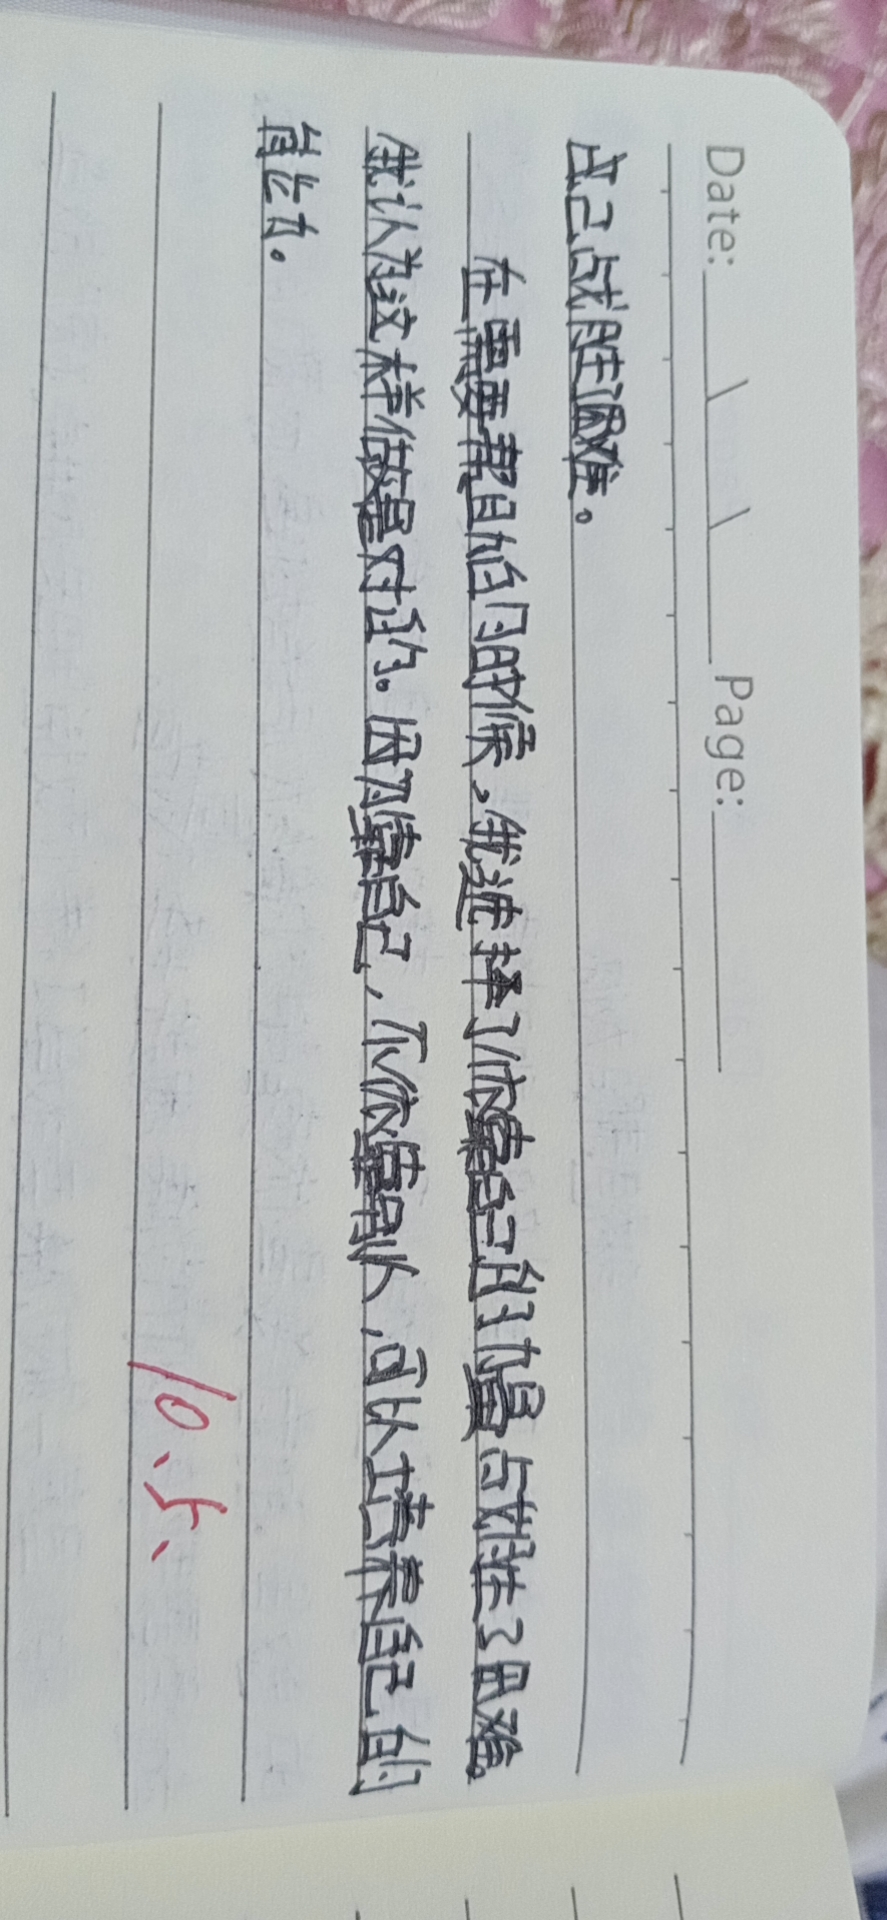 Date: \ \ Page:
自己战胜困难。
在需要帮助的时候，我选择了依靠自己的力量占战胜了困难。
我认为这样做是对的。因为靠自己，不依靠别人，可以培养自己的
能力。
10.5.